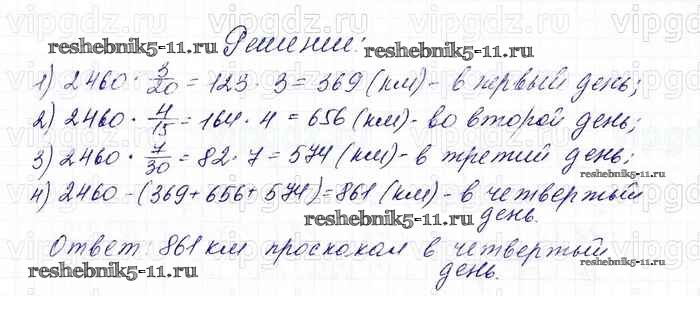 vipgdz.ru vipgdz.ru vipgdz.ru vipgdz.ru
reshebnik5-11.ru Решение: reshebnik5-11.ru
1) 2460 · 3/20 = 123 · 3 = 369 (км) - в первый день;
2) 2460 · 4/15 = 164 · 4 = 656 (км) - во второй день;
3) 2460 · 7/30 = 82 · 7 = 574 (км) - в третий день;
4) 2460 - (369 + 656 + 574) = 861 (км) - в четвертый
reshebnik5-11.ru день.
Ответ: 861 км проскакал в четвертый
reshebnik5-11.ru день. reshebnik5-11.ru